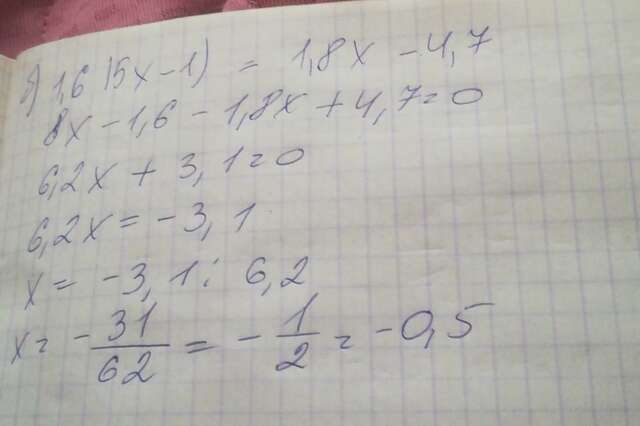 б) 1,6 (5x - 1) = 1,8x - 4,7
8x - 1,6 - 1,8x + 4,7 = 0
6,2x + 3,1 = 0
6,2x = -3,1
x = -3,1 : 6,2
x = -31/62 = -1/2 = -0,5